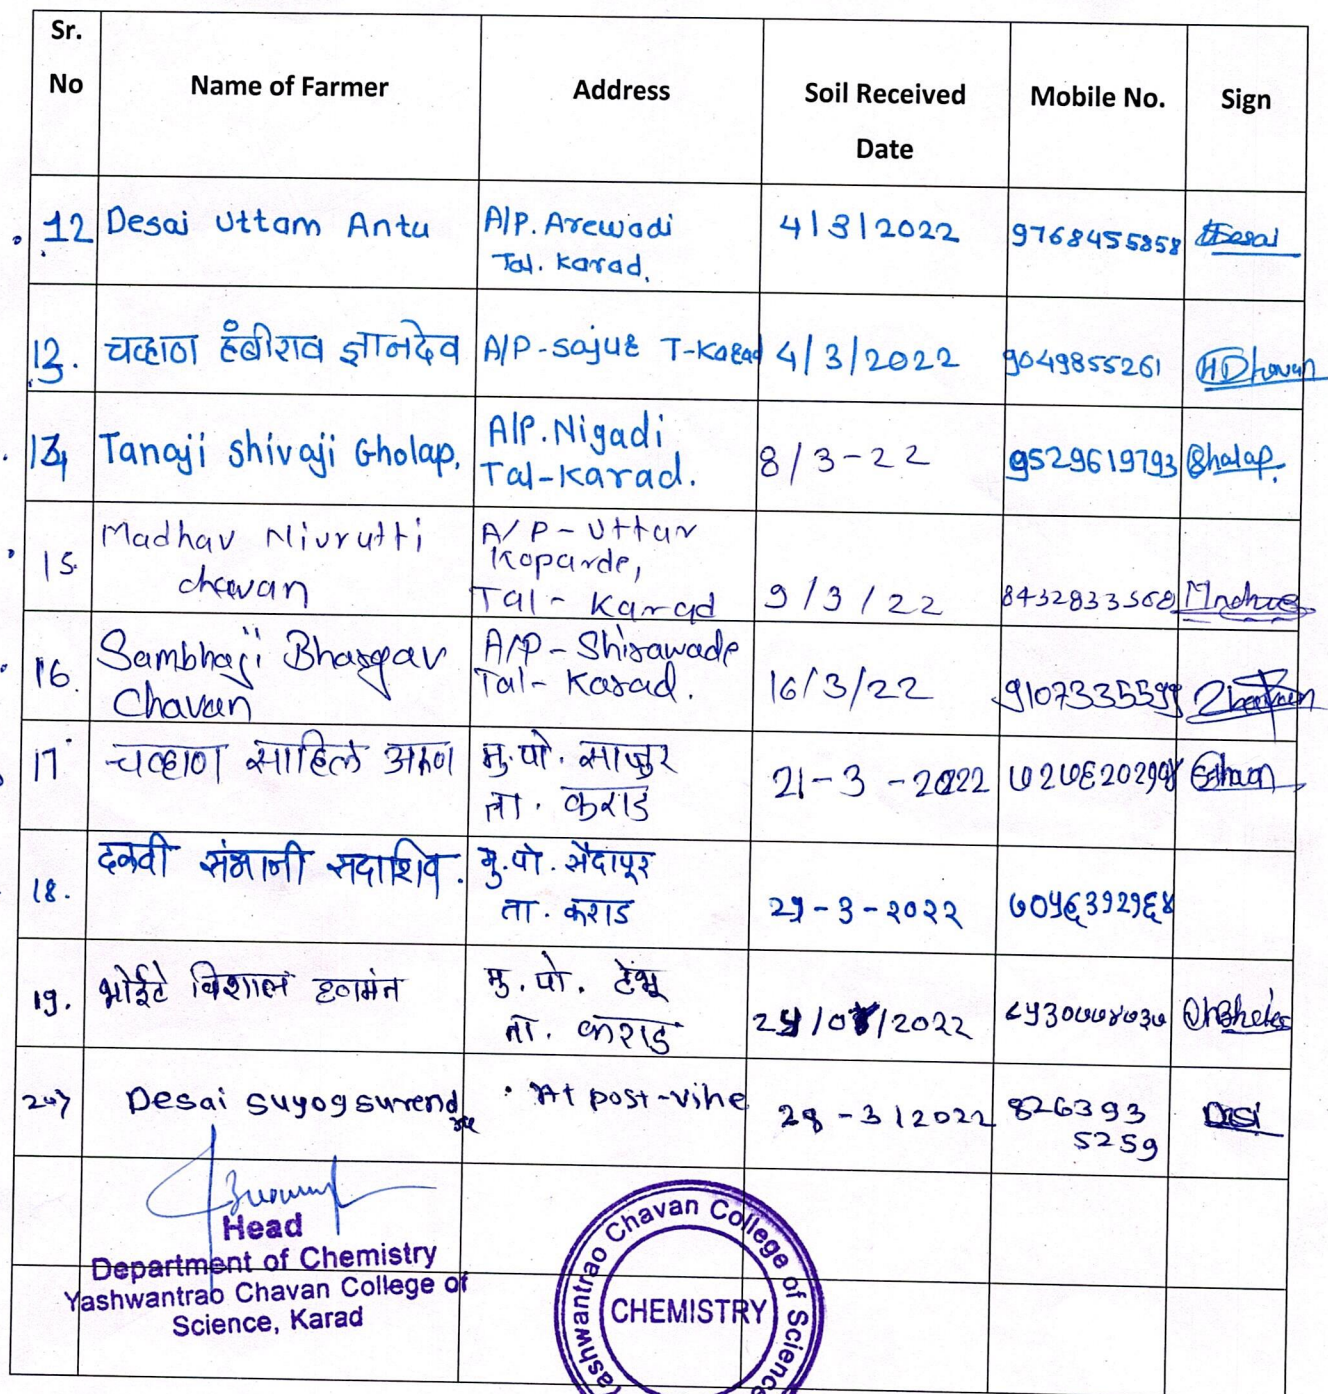 Sr.
No
Name of Farmer
Address
Soil Received
Date
Mobile No.
Sign
12 Desai Uttam Antu
A/P. Arewadi
Tal. Karad.
4/3/2022
9768455858
Desai
13. चव्हाण हंबीराव ज्ञानदेव
A/P-Sajur T-Karad
4/3/2022
9049855261
HDhavan
14 Tanaji Shivaji Gholap.
A/P. Nigadi
Tal-Karad.
8/3-22
9529619793
Gholap.
15. Madhav Nivrutti
chavan
A/P-Uttar
Koparde,
Tal- Karad
9/3/22
16. Sambhaji Bhargav
Chavan
A/P-Shirawade
Tal- Karad.
16/3/22
17 चव्हाण साहिल अरुण
मु.पो. साजुर
ता. कराड
21-3-2022
18. दळवी संभाजी सदाशिव.
मु.पो. सैदापूर
ता. कराड
29-3-२०२२
७०५६३९२९६४
19. भोईटे विशाल हणमंत
मु. पो. टेंभू
ता. कराड
८५३०७७४७३७
20) Desai suyog surend
At post-vihe
28-3/2022
826393
5259
Desi
Head
Department of Chemistry
Yashwantrao Chavan College of
Science, Karad
Yashwantrao Chavan College of Science
CHEMISTRY